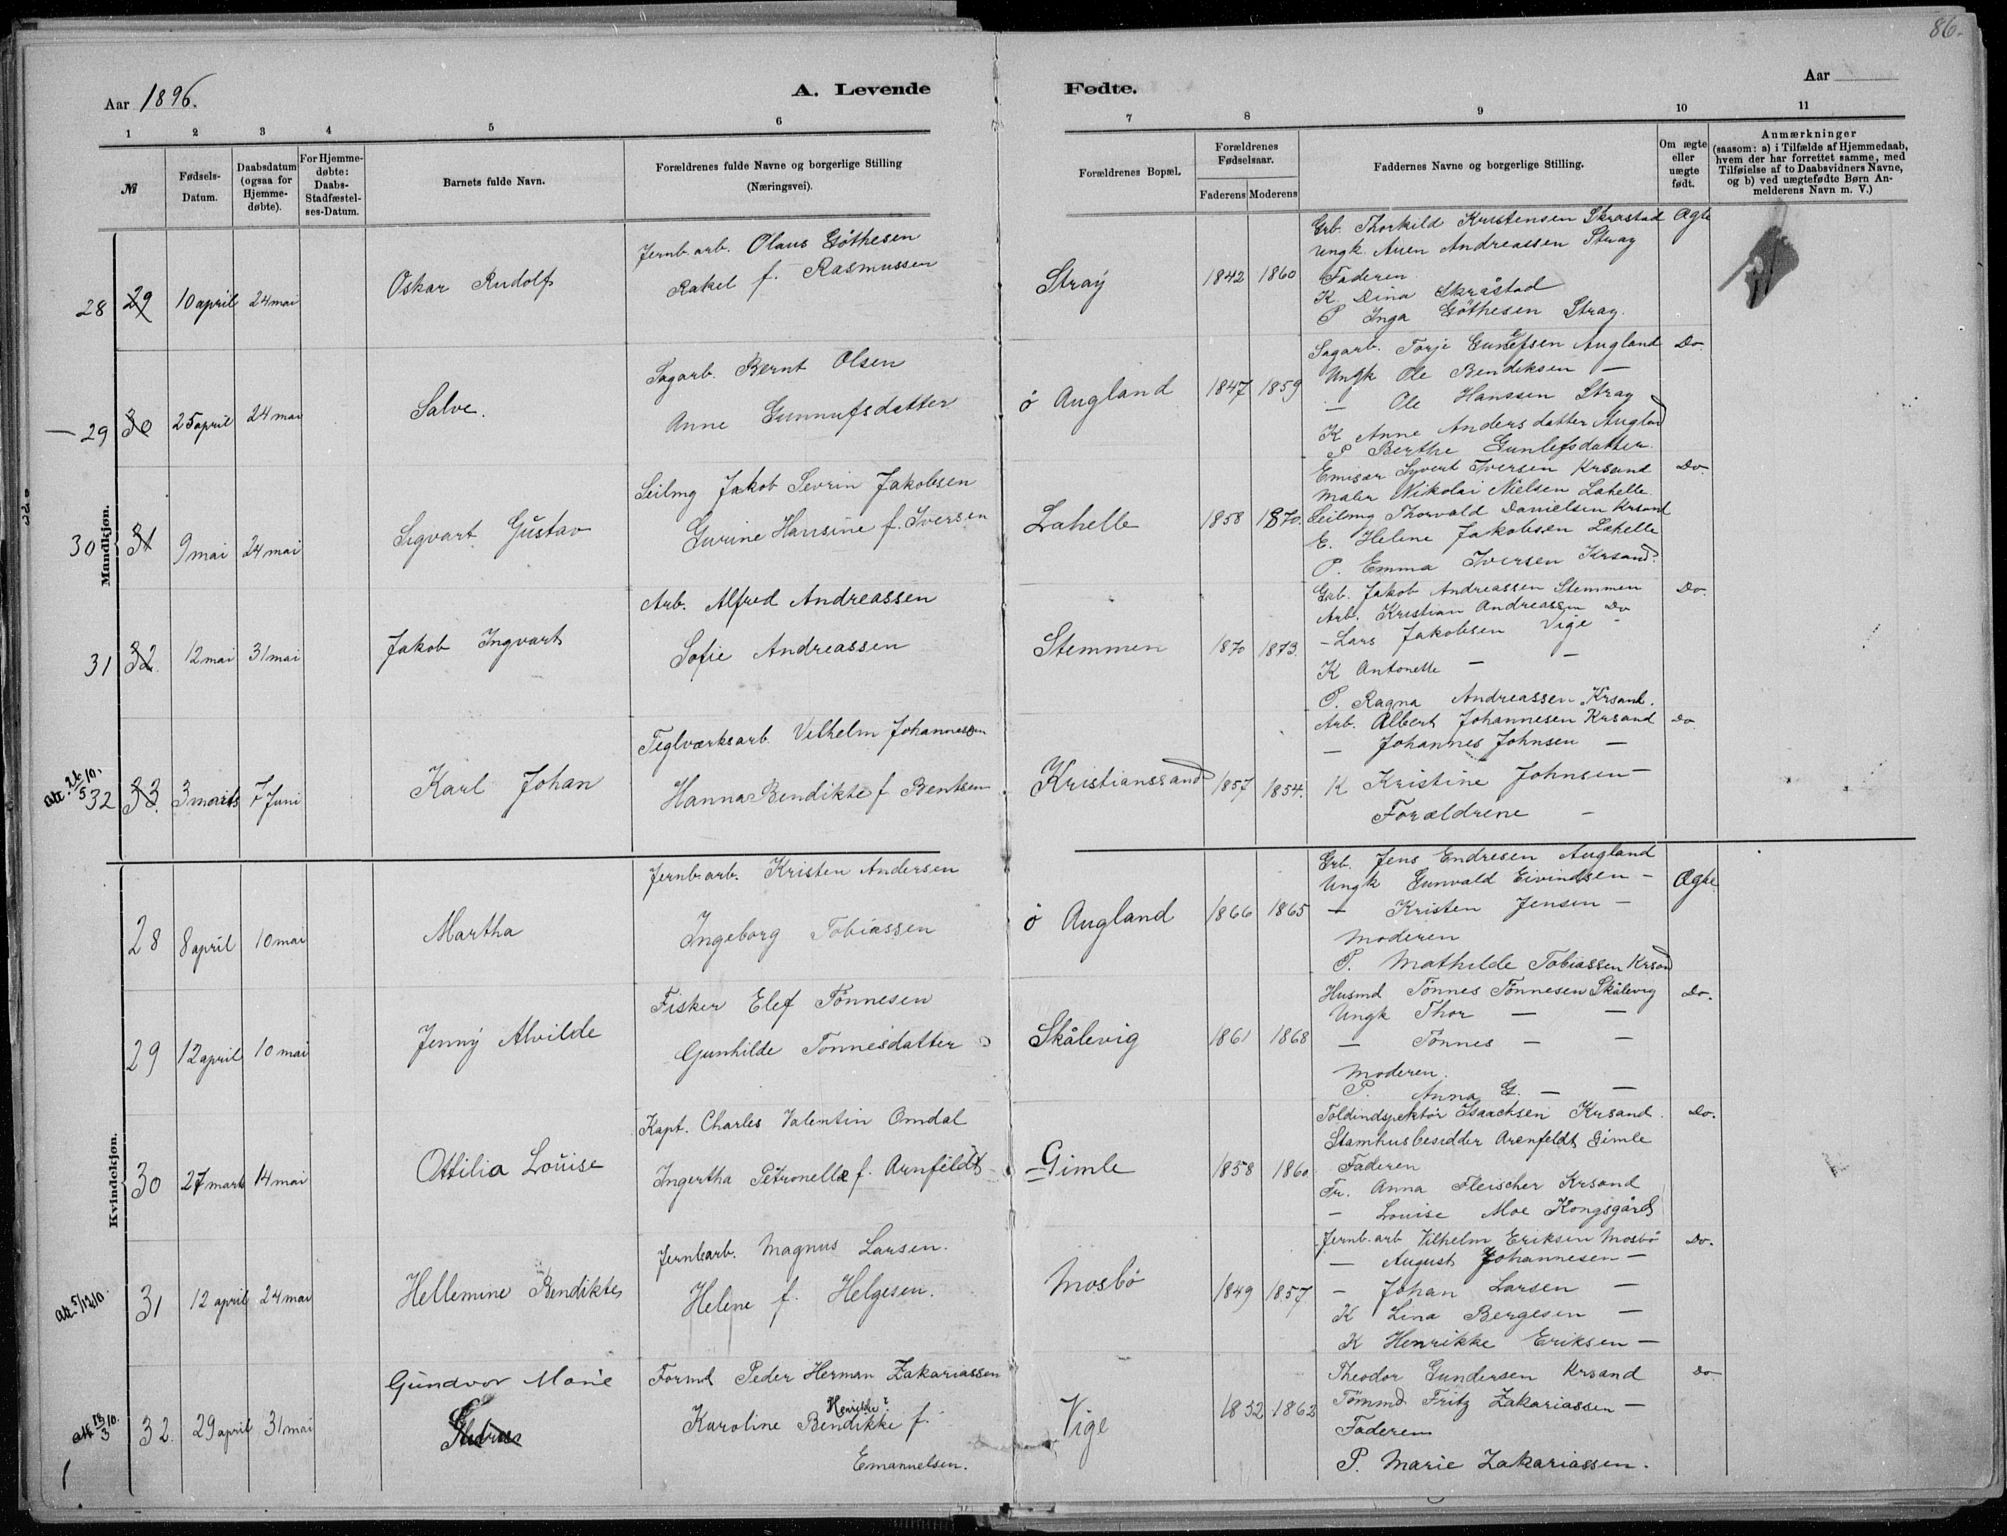 86.
Aar 1896.
A. Levende
Fødte.
Aar
1 2 3 4 5 6 7 8 9 10 11
№
Fødsels-
Datum.
Daabsdatum
(ogsaa for
Hjemme-
døbte).
For Hjemme-
døbte:
Daabs-
Stadfæstel-
ses-Datum.
Barnets fulde Navn.
Forældrenes fulde Navne og borgerlige Stilling
(Næringsvei).
Forældrenes Bopæl.
Forældrenes
Fødselsaar.
Faderens Moderens
Faddernes Navne og borgerlige Stilling.
Om ægte
eller
uægte
født.
Anmærkninger
(saasom: a) i Tilfælde af Hjemmedaab,
hvem der har forrettet samme, med
Tilføielse af to Daabsvidners Navne,
og b) ved uægtefødte Børn An-
melderens Navn m. V.)
Mandkjøn.
28 29 10 april 24 mai
Oskar Rudolf
Jernb.arb. Olaus Göthesen
Rakel f. Rasmussen
Stray
1842 1860
Grb. Thorkild Kristensen Skråstad
Ungk. Auen Andreassen Stray
Faderen
K. Dina Skråstad
P. Inga Göthesen Stray.
Ægte
— 29 30 25 april 24 mai
Salve.
Sagarb. Bernt Olsen
Anne Gunnufsdatter
ö Augland
1847 1859
Sagarb. Torje Gunlefsen Augland
Ungk Ole Bendiksen —
— Ole Hanssen Stray
K Anne Andersdatter Augland
P Berthe Gunlefsdatter.
Do.
30 31 9 mai 24 mai
Sigvart Gustav
Seilmg Jakob Sevrin Jakobsen
Gurine Hansine f. Iversen
Lahelle
1858 1870.
Emisær Syvert Iversen Krsand
Maler Nikolai Nielsen Lahelle.
Seilmg Thorvald Danielsen Krsand
E. Helene Jakobsen Lahelle
P. Emma Iversen Krsand.
Do
31 32 12 mai 31 mai
Jakob Ingvart
Arb. Alfred Andreassen
Sofie Andreassen
Stemmen
1870 1873.
Grb. Jakob Andreassen Stemmen
Arb. Kristian Andreassen Do
— Lars Jakobsen Vige —
K Antonette — —
P. Ragna Andreassen Krsand.
Do.
32 33. 3 marts 7 Juni
Karl Johan
Teglværksarb. Vilhelm Johannesen
Hanna Bendikte f Bentsen
Kristianssand
1857 1854.
Arb. Albert Johannesen Krsand
— Johannes Johnsen —
K Kristine Johnsen —
Forældrene —
Do
Kvindekjøn.
28 8 april 10 mai
Martha
Jernb.arb. Kristen Andersen
Ingeborg Tobiassen
ö Augland
1866 1865
Grb. Jens Endresen Augland
Ungk Gunvald Eivindsen —
— Kristen Jensen —
Moderen
P. Mathilde Tobiassen Krsand
Ægte
29 12 april 10 mai
Jenny Alvilde
Fisker Elef Tönnesen
Gunhilde Tönnesdatter
Skålevig
1861 1868
Husmd Tönnes Tönnesen Skålevig
Ungk Thor — —
— Tönnes — —
Moderen.
P. Anna G. — —
Do.
30 27 marts 14 mai
Ottilia Louise
Kapt. Charles Valentin Omdal
Ingertha Petronelle f. Arnfeldt
Gimle
1858 1860
Toldindspektör Isaachsen Krsand.
Stamhusbesidder Arenfeldt Gimle
Faderen
Fr. Anna Fleischer Krsand
— Louise Moe Kongsgård
Do.
att. 5/12 10.
31 12 april 24 mai
Hellemine Bendikte
Jernb.arb. Magnus Larsen.
Helene f. Helgesen.
Mosbö
1849 1857
Jernb.arb Vilhelm Eriksen Mosbö
— August Johannesen —
— Johan Larsen —
K Lina Bergesen —
K Henrikke Eriksen —
Do.
32. 29 april 31 mai
Gundvor Marie
Formd Peder Herman Zakariassen
Henrikke?
Karoline Bendikke f.
Emanuelsen.
Vige
1852 1862
Theodor Gundersen Krsand
Tömmd. Fritz Zakariassen —
Faderen
P. Marie Zakariassen.
Do